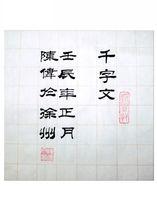 千字文
壬辰年正月
陳偉於徐州